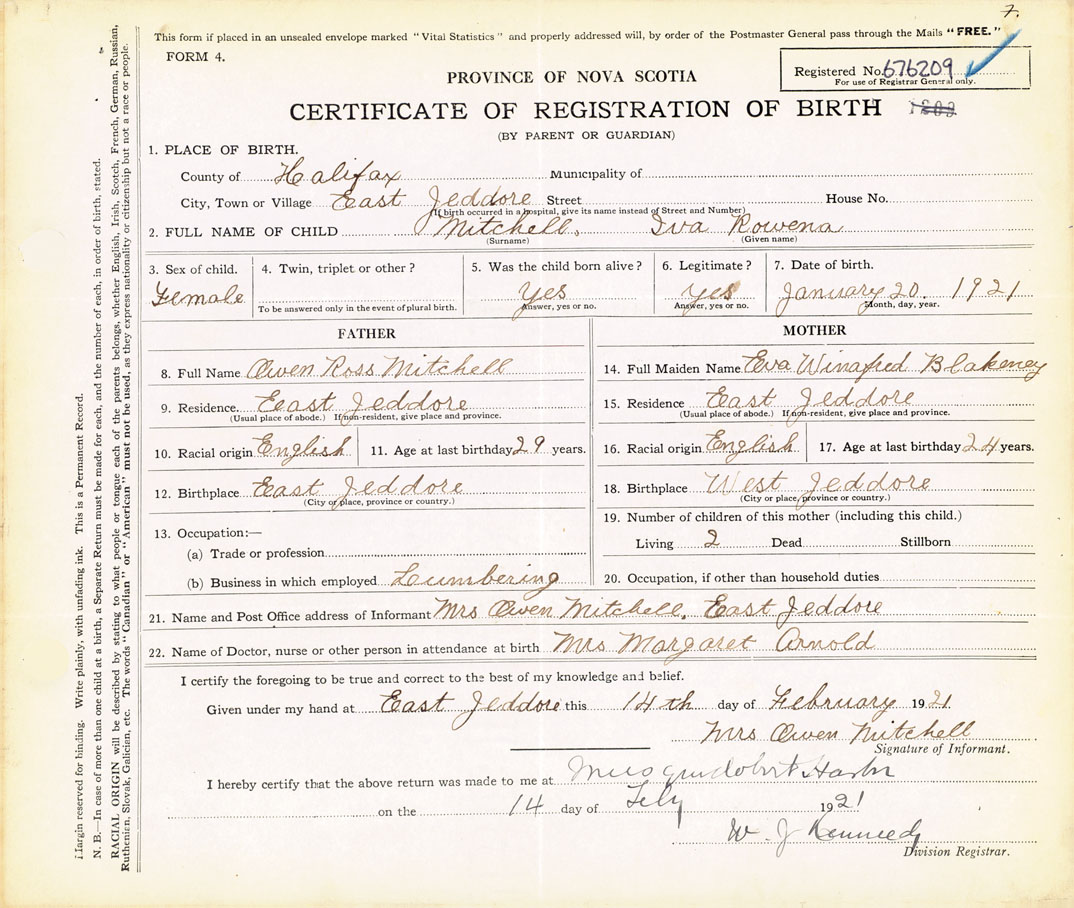 7.
This form if placed in an unsealed envelope marked "Vital Statistics" and properly addressed will, by order of the Postmaster General pass through the Mails "FREE."
FORM 4.
Registered No. 676209
For use of Registrar General only.
PROVINCE OF NOVA SCOTIA
CERTIFICATE OF REGISTRATION OF BIRTH
(BY PARENT OR GUARDIAN)
1. PLACE OF BIRTH.
County of Halifax Municipality of
City, Town or Village East Jeddore Street House No.
(If birth occurred in a hospital, give its name instead of Street and Number)
2. FULL NAME OF CHILD Mitchell, Iva Rowena
(Surname) (Given name)
3. Sex of child. 4. Twin, triplet or other? 5. Was the child born alive? 6. Legitimate? 7. Date of birth.
Female Yes Yes January 20. 1921
To be answered only in the event of plural birth. Answer, yes or no. Answer, yes or no. Month, day, year.
FATHER
8. Full Name Owen Ross Mitchell
9. Residence. East Jeddore
(Usual place of abode.) If non-resident, give place and province.
10. Racial origin English 11. Age at last birthday 29 years.
12. Birthplace East Jeddore
(City or place, province or country.)
13. Occupation:—
(a) Trade or profession
(b) Business in which employed Lumbering
MOTHER
14. Full Maiden Name Eva Winafred Blakeney
15. Residence East Jeddore
(Usual place of abode.) If non-resident, give place and province.
16. Racial origin English 17. Age at last birthday 24 years.
18. Birthplace West Jeddore
(City or place, province or country.)
19. Number of children of this mother (including this child.)
Living 2 Dead Stillborn
20. Occupation, if other than household duties
21. Name and Post Office address of Informant Mrs Owen Mitchell, East Jeddore
22. Name of Doctor, nurse or other person in attendance at birth Mrs Margaret Arnold
I certify the foregoing to be true and correct to the best of my knowledge and belief.
Given under my hand at East Jeddore this 14th day of February 1921
Mrs Owen Mitchell
Signature of Informant.
I hereby certify that the above return was made to me at Musquodoboit Harbor
on the 14 day of Feby 1921
W. J Kennedy
Division Registrar.
Margin reserved for binding. Write plainly, with unfading ink. This is a Permanent Record.
N. B.—In case of more than one child at a birth, a Separate Return must be made for each, and the number of each, in order of birth, stated.
RACIAL ORIGIN will be described by stating to what people or tongue each of the parents belongs, whether English, Irish, Scotch, French, German, Russian,
Ruthenian, Slovak, Galician, etc. The words "Canadian" or "American" must not be used, as they express nationality or citizenship but not a race or people.